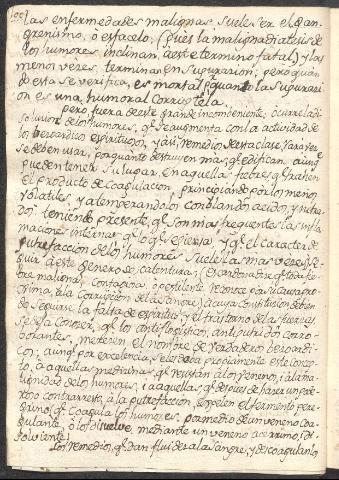 las enfermedades malignas suele ser el Gan-
grenismo, ò esfacelo; (pues la maligna diatesis de
los humores, inclinan à este termino fatal) y las
menos veces terminan en supuracion; pero quan-
do esta se verifica, es mortal, por quanto la supuraci-
on es una humoral corruptela.
pero fuera de este grande inconbeniente, ocurre la di-
solucion de los humores, qe. se augmenta con la actividad de
los bezoardicos espirituosos, y asi, remedios de esta clase, rara vez
se deben usar, porquanto destruyen mas, qe. edifican, aunqe.
pueden tener su lugar, en aquellas fiebres qe. trahen
el producto de coagulacion, principiando por los menos
volatiles, y atemperandolos con blandos acidos, y nitra-
dos: teniendo presente, qe. son mas frequentes las infla-
maciones internas, y qe. el caracter de
putrefaccion de los humores suele las mas veces se-
guir à este genero de calenturas;
bre maligna, contagiosa, ò pestilente reconoce por su causa pro-
xima, à la corrupcion de la sangre,) à cuya constitucion deben
de seguirse la falta de espiritus y el trastorno de las fuerzas
se dexa conocer, qe. los antiflogistico, antiputridos corro-
borantes, merecen el nombre de verdaderos bezoardi-
cos; aunqe. por excelencia, se les deba propiamente este concep-
to, à aquellas medicinas qe. resisten à los venenos, i à la ma-
lignidad de los humores, i à aquellas qe. despues de hazer un per-
petuo contrarresto, à la putrefaccion, expelen el fermento pere-
grino, qe. coagula los humores, por medio de un veneno coa-
gulante, ò los disuelve, mediante un veneno acerrimo, di-
solviente:
Los remedios, qe. dan fluidez a la sangre, y descoagulan los